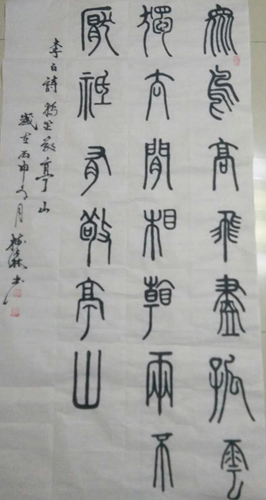 眾鳥高飛盡孤雲
獨去閒相看兩不
厭祇有敬亭山
李白詩獨坐敬亭山
歲在丙申月书